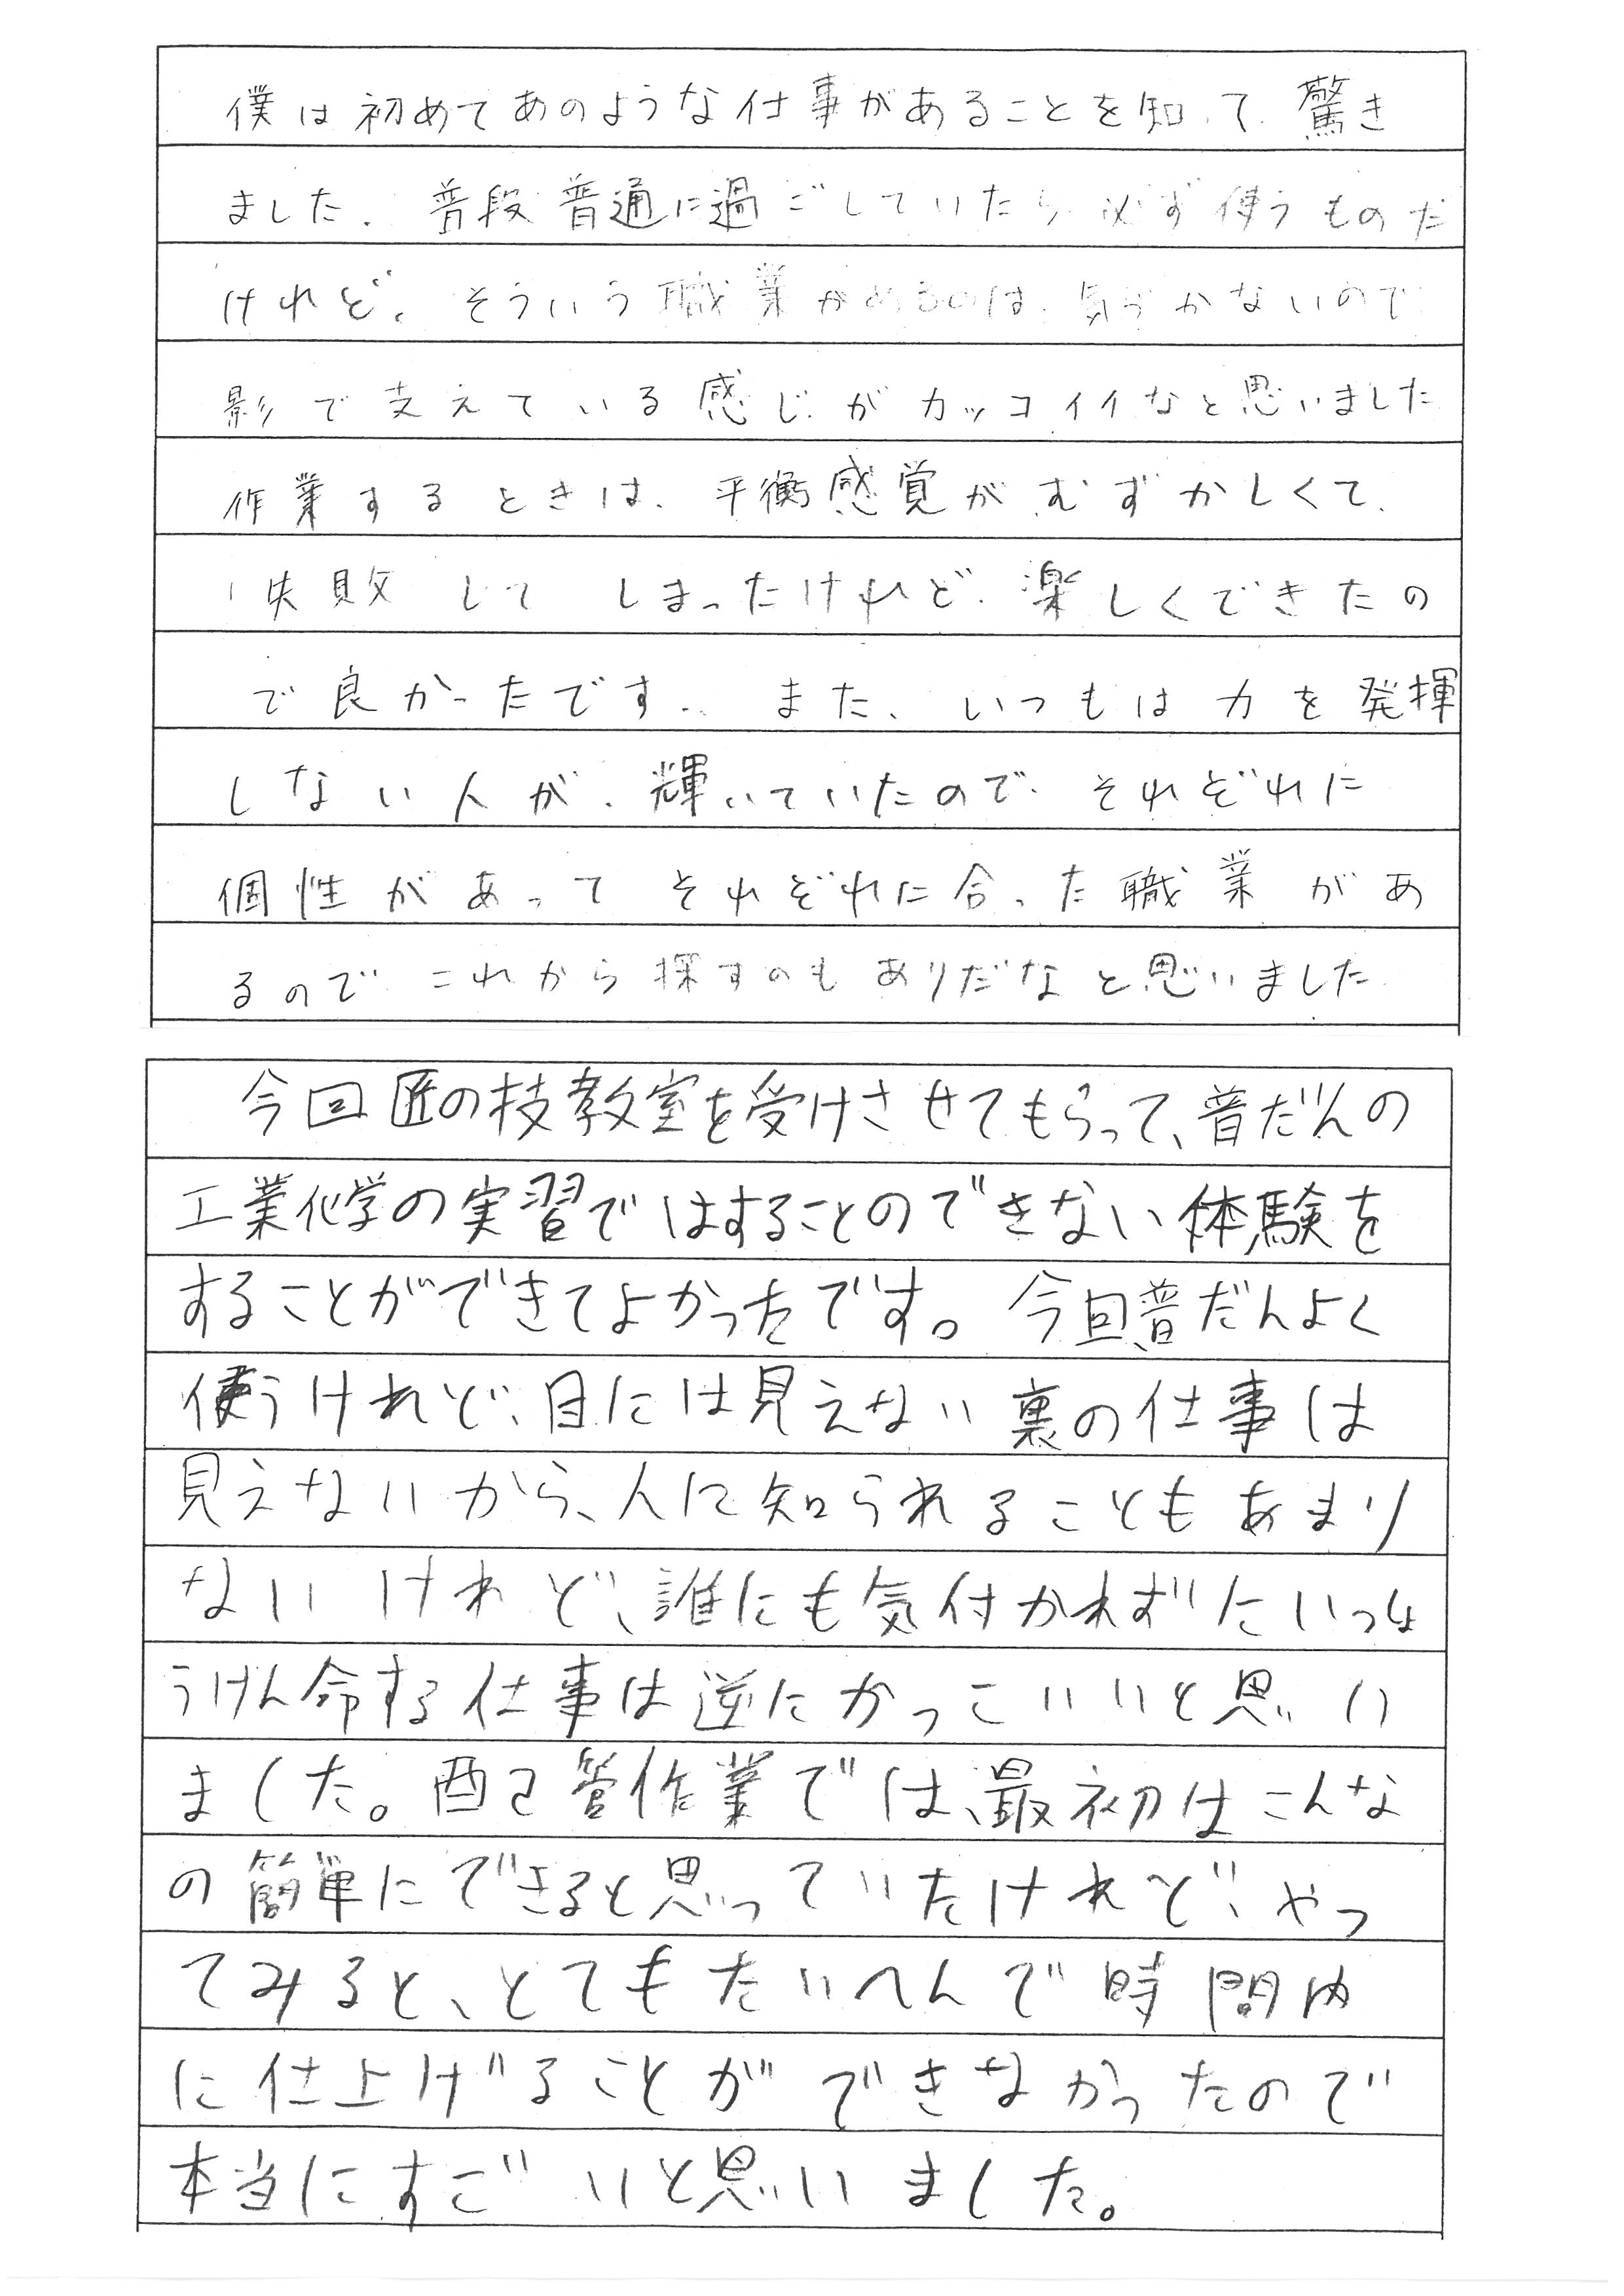 僕は初めてあのような仕事があることを知って、驚き
ました。普段普通に過ごしていたら必ず使うものだ
けれど、そういう職業があるのは、気づかないので
影で支えている感じがカッコイイなと思いました
作業するときは、平衡感覚がむずかしくて、
失敗してしまったけれど、楽しくできたの
で良かったです。また、いつもは力を発揮
しない人が、輝いていたので、それぞれに
個性があってそれぞれに合った職業があ
るので これから探すのもありだなと思いました
今回匠の技教室を受けさせてもらって、普だんの
工業化学の実習ではすることのできない体験を
することができてよかったです。今回普だんよく
使うけれど、目には見えない裏の仕事は
見えないから、人に知られることもあまり
ないけれど、誰にも気付かれずにいっしょ
うけん命する仕事は逆にかっこいいと思い
ました。配管作業では、最初はこんな
の簡単にできると思っていたけれど、やっ
てみると、とてもたいへんで時間内
に仕上げることができなかったので
本当にすごいと思いました。